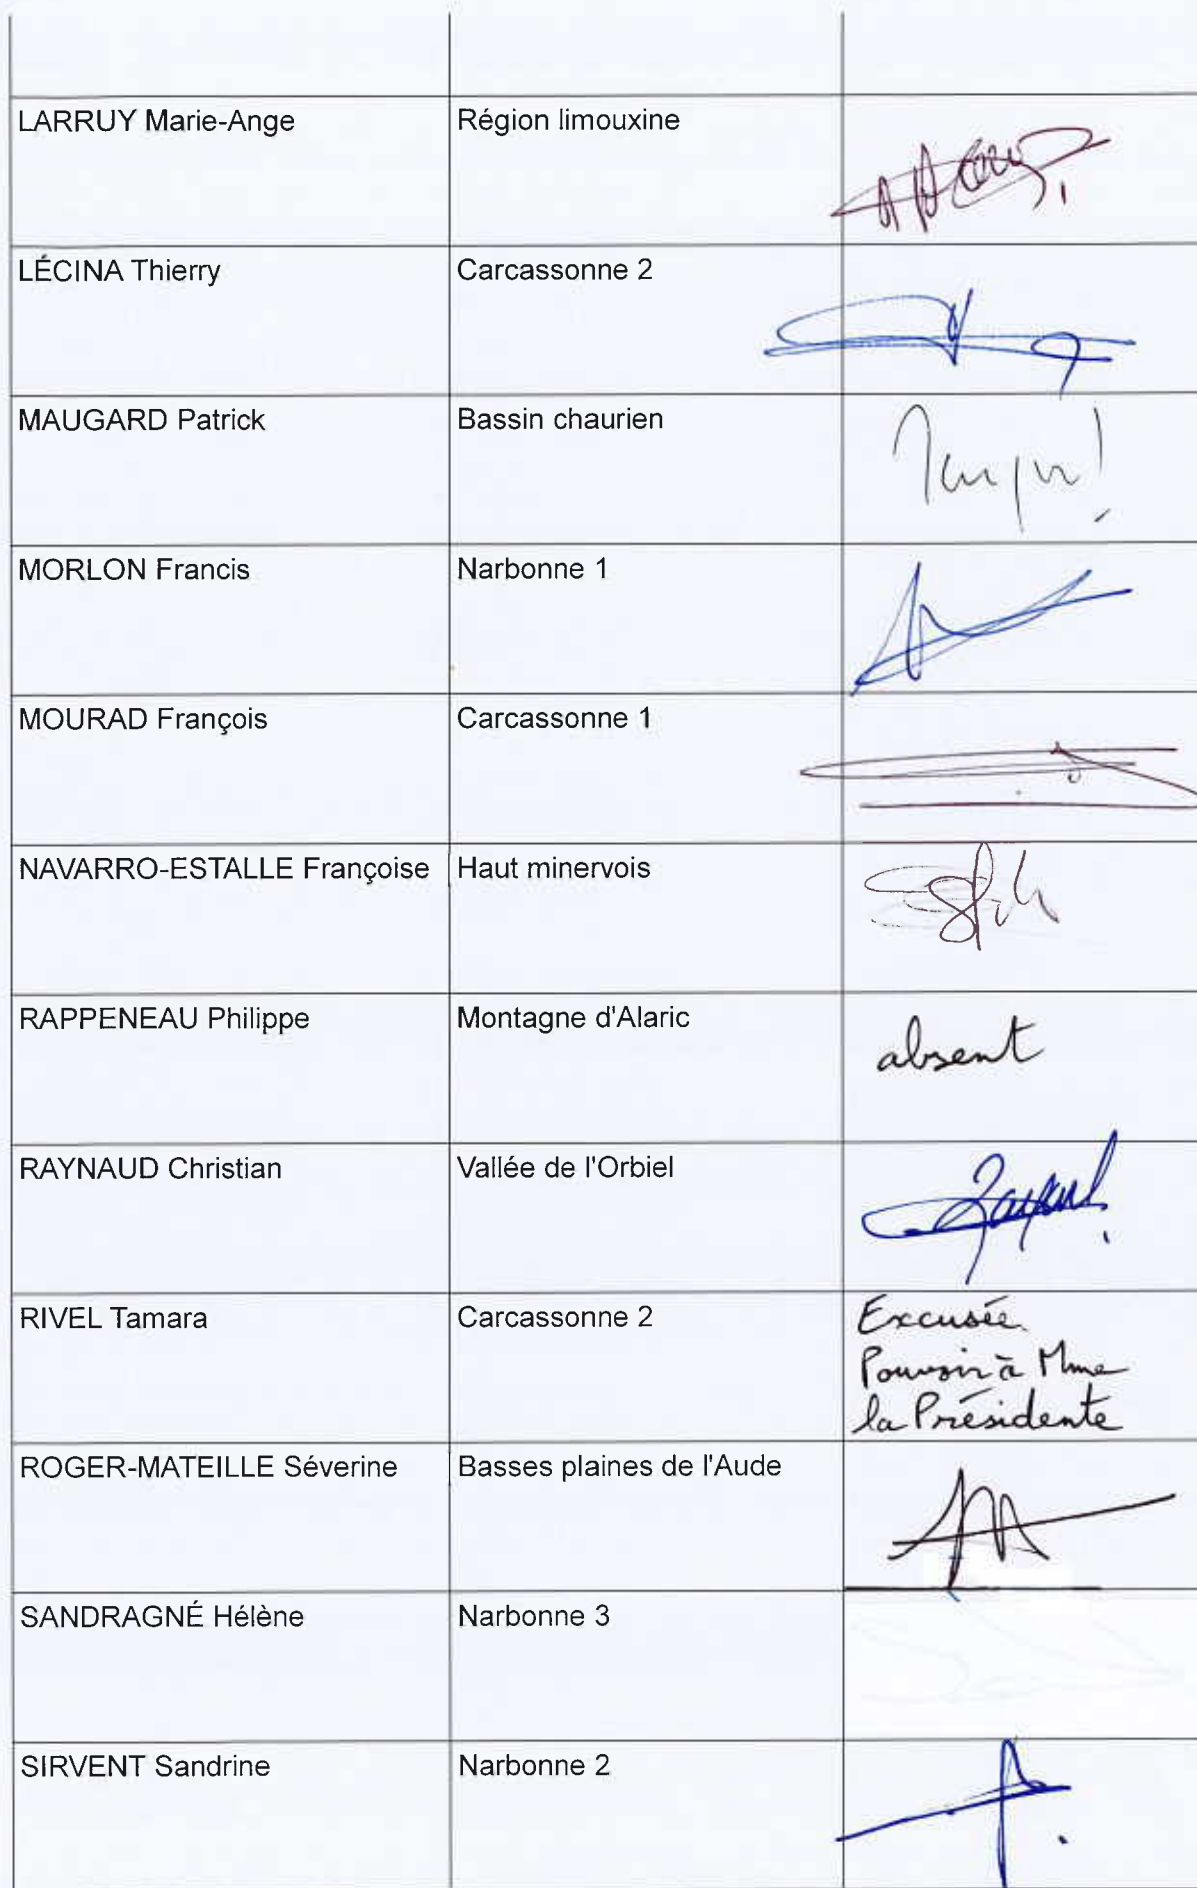 LARRUY Marie-Ange Région limouxine
LÉCINA Thierry Carcassonne 2
MAUGARD Patrick Bassin chaurien
MORLON Francis Narbonne 1
MOURAD François Carcassonne 1
NAVARRO-ESTALLE Françoise Haut minervois
RAPPENEAU Philippe Montagne d'Alaric absent
RAYNAUD Christian Vallée de l'Orbiel
RIVEL Tamara Carcassonne 2 Excusée
Pouvoir à Mme
la Présidente
ROGER-MATEILLE Séverine Basses plaines de l'Aude
SANDRAGNÉ Hélène Narbonne 3
SIRVENT Sandrine Narbonne 2